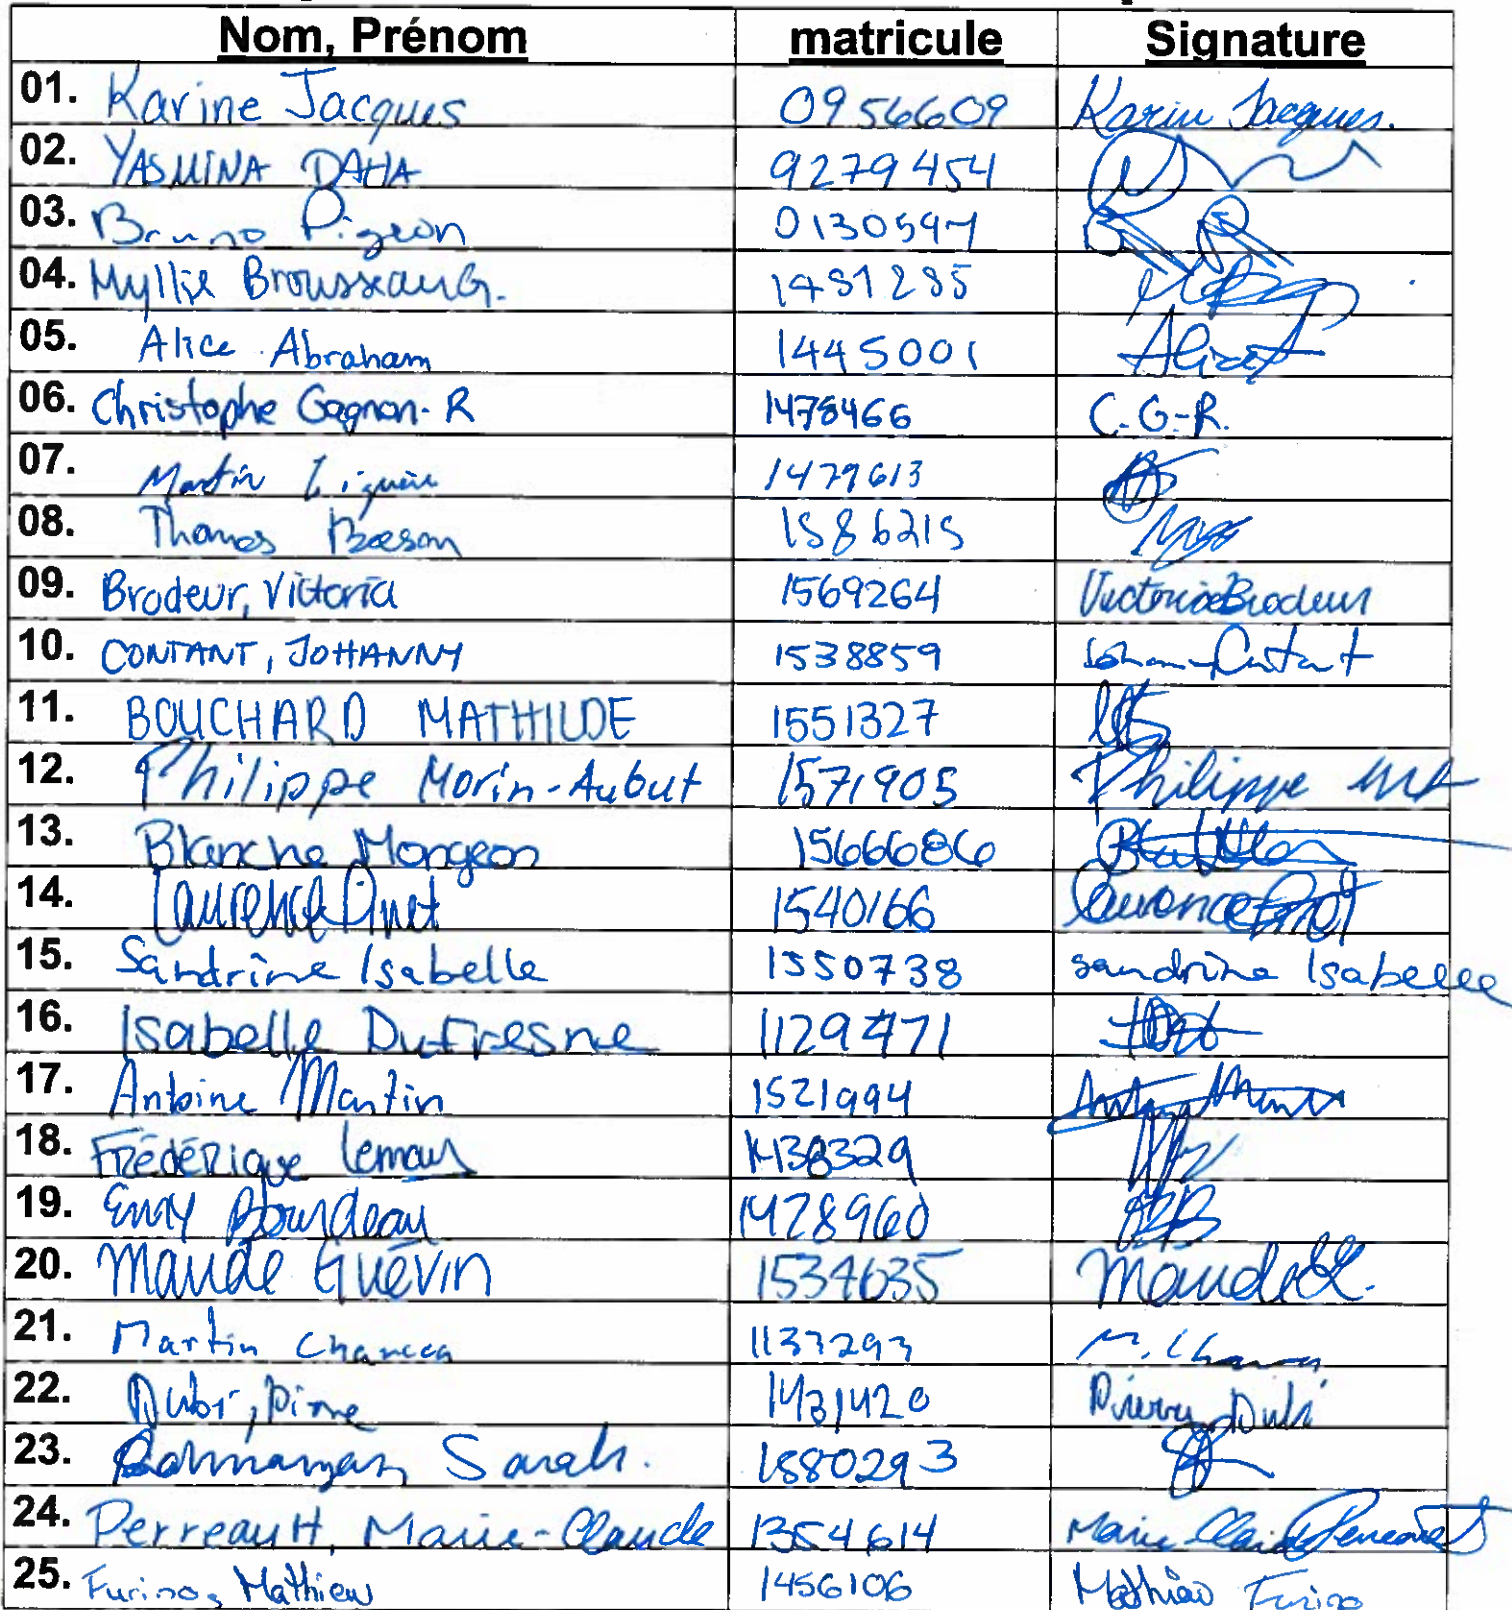 Nom, Prénom matricule Signature
01. Karine Jacques 0956609 Karine Jacques.
02. YASMINA DAHA 9279454
03. Bruno Pigeon 0130597
04. Myllie Brousseau G. 1481285
05. Alice Abraham 1445001 Alice A
06. Christophe Gagnon-R 1478466 C.G-R.
07. Martin 1479613
08. Thomas 1586215
09. Brodeur, Victoria 1569264 Victoria Brodeur
10. CONTANT, JOHANNY 1538859
11. BOUCHARD MATHILDE 1551327
12. Philippe Morin-Aubut 1571905 Philippe MA
13. Blanche Mongeon 1566686
14. Laurence Pinet 1540166 Laurence Pinet
15. Sandrine Isabelle 1550738 sandrine Isabelle
16. Isabelle Dufresne 1129471
17. Antoine Martin 1521994 Antoine Martin
18. FRÉDÉRIQUE Lemaus 1438329
19. Emy Bourdeau 1428960
20. Maude Guévin 1534635 Maude G.
21. Martin 1137293
22. 1431420
23. Sarah. 1580293
24. Perreault, Marie-Claude 1354614 Marie-Claude Perreault
25. Furino, Mathieu 1456106 Mathieu Furino